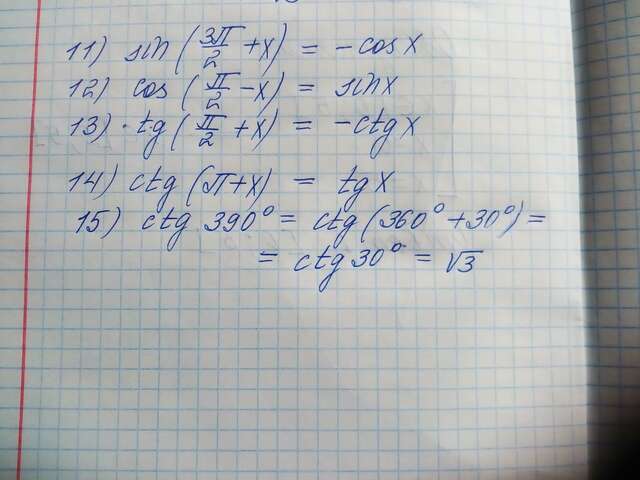 11) sin(3π/2 + x) = -cos x
12) cos(π/2 - x) = sin x
13) tg(π/2 + x) = -ctg x
14) ctg(π + x) = tg x
15) ctg 390° = ctg(360° + 30°) =
= ctg 30° = √3